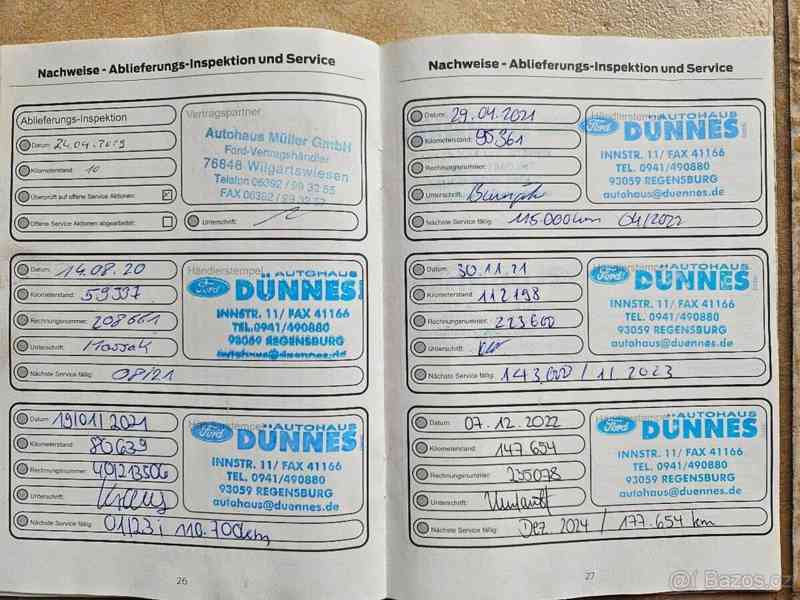 Nachweise - Ablieferungs-Inspektion und Service
Ablieferungs-Inspektion
Datum: 24.04.2019
Kilometerstand: 10
Überprüft auf offene Service Aktionen:
Offene Service Aktionen abgearbeitet:
Vertragspartner
Autohaus Müller GmbH
Ford-Vertragshändler
76848 Wilgartswiesen
Telefon 06392 / 99 32 55
FAX 06392 / 99 32 57
Unterschrift:
Datum: 14.08.20
Kilometerstand: 59397
Rechnungsnummer: 208661
Unterschrift:
Nächste Service fällig: 08/21
Händlerstempel
Ford AUTOHAUS
DÜNNES
INNSTR. 11/ FAX 41166
TEL.0941/490880
93059 REGENSBURG
autohaus@duennes.de
Datum: 19/01/2021
Kilometerstand: 80639
Rechnungsnummer: 401213506
Unterschrift: Kraus
Nächste Service fällig: 01/23; 110.700km
Händlerstempel
Ford AUTOHAUS
DÜNNES
INNSTR. 11/ FAX 41166
TEL. 0941/490880
93059 REGENSBURG
autohaus@duennes.de
26
Nachweise - Ablieferungs-Inspektion und Service
Datum: 29.04.2021
Kilometerstand: 95361
Rechnungsnummer:
Unterschrift:
Nächste Service fällig: 115.000km 04/2022
Händlerstempel
Ford AUTOHAUS
DÜNNES
INNSTR. 11/ FAX 41166
TEL. 0941/490880
93059 REGENSBURG
autohaus@duennes.de
Datum: 30.11.21
Kilometerstand: 112198
Rechnungsnummer: 223600
Unterschrift:
Nächste Service fällig: 143.000 / 11 2023
Händlerstempel
Ford AUTOHAUS
DÜNNES
INNSTR. 11/ FAX 41166
TEL. 0941/490880
93059 REGENSBURG
autohaus@duennes.de
Datum: 07.12.2022
Kilometerstand: 147.654
Rechnungsnummer: 235078
Unterschrift:
Nächste Service fällig: Dez. 2024 / 177.654 km
Händlerstempel
Ford AUTOHAUS
DÜNNES
INNSTR. 11/ FAX 41166
TEL. 0941/490880
93059 REGENSBURG
autohaus@duennes.de
27
Bazos.cz